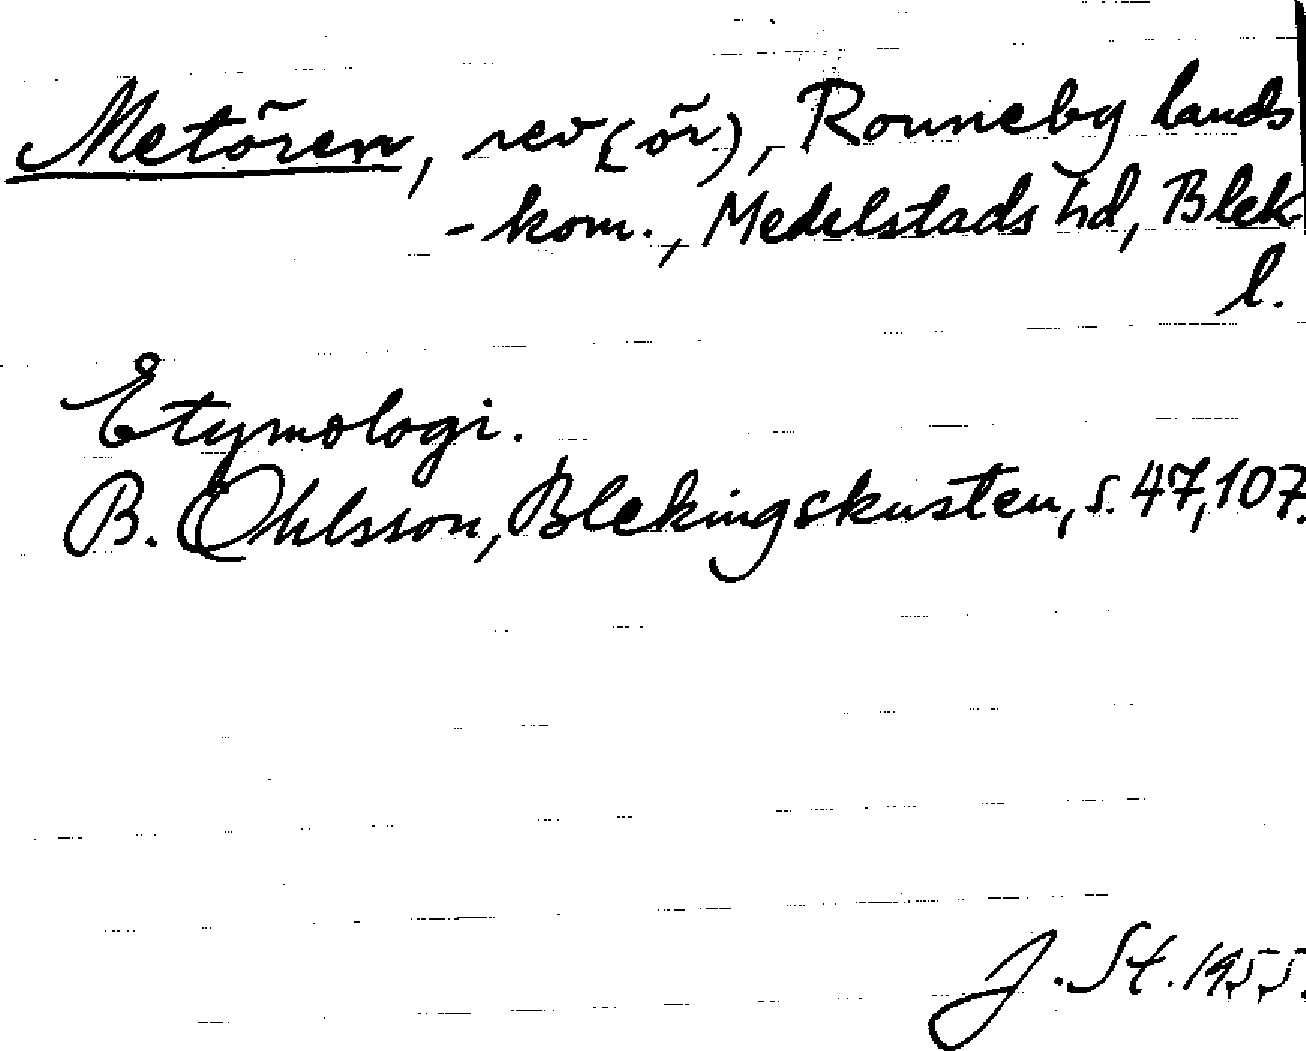 Metören, rev (ör), Ronneby lands
-kom., Medelstads hd, Blek
l.
Etymologi.
B. Ohlsson, Blekingskusten, s. 47, 107.
J. St. 1955.